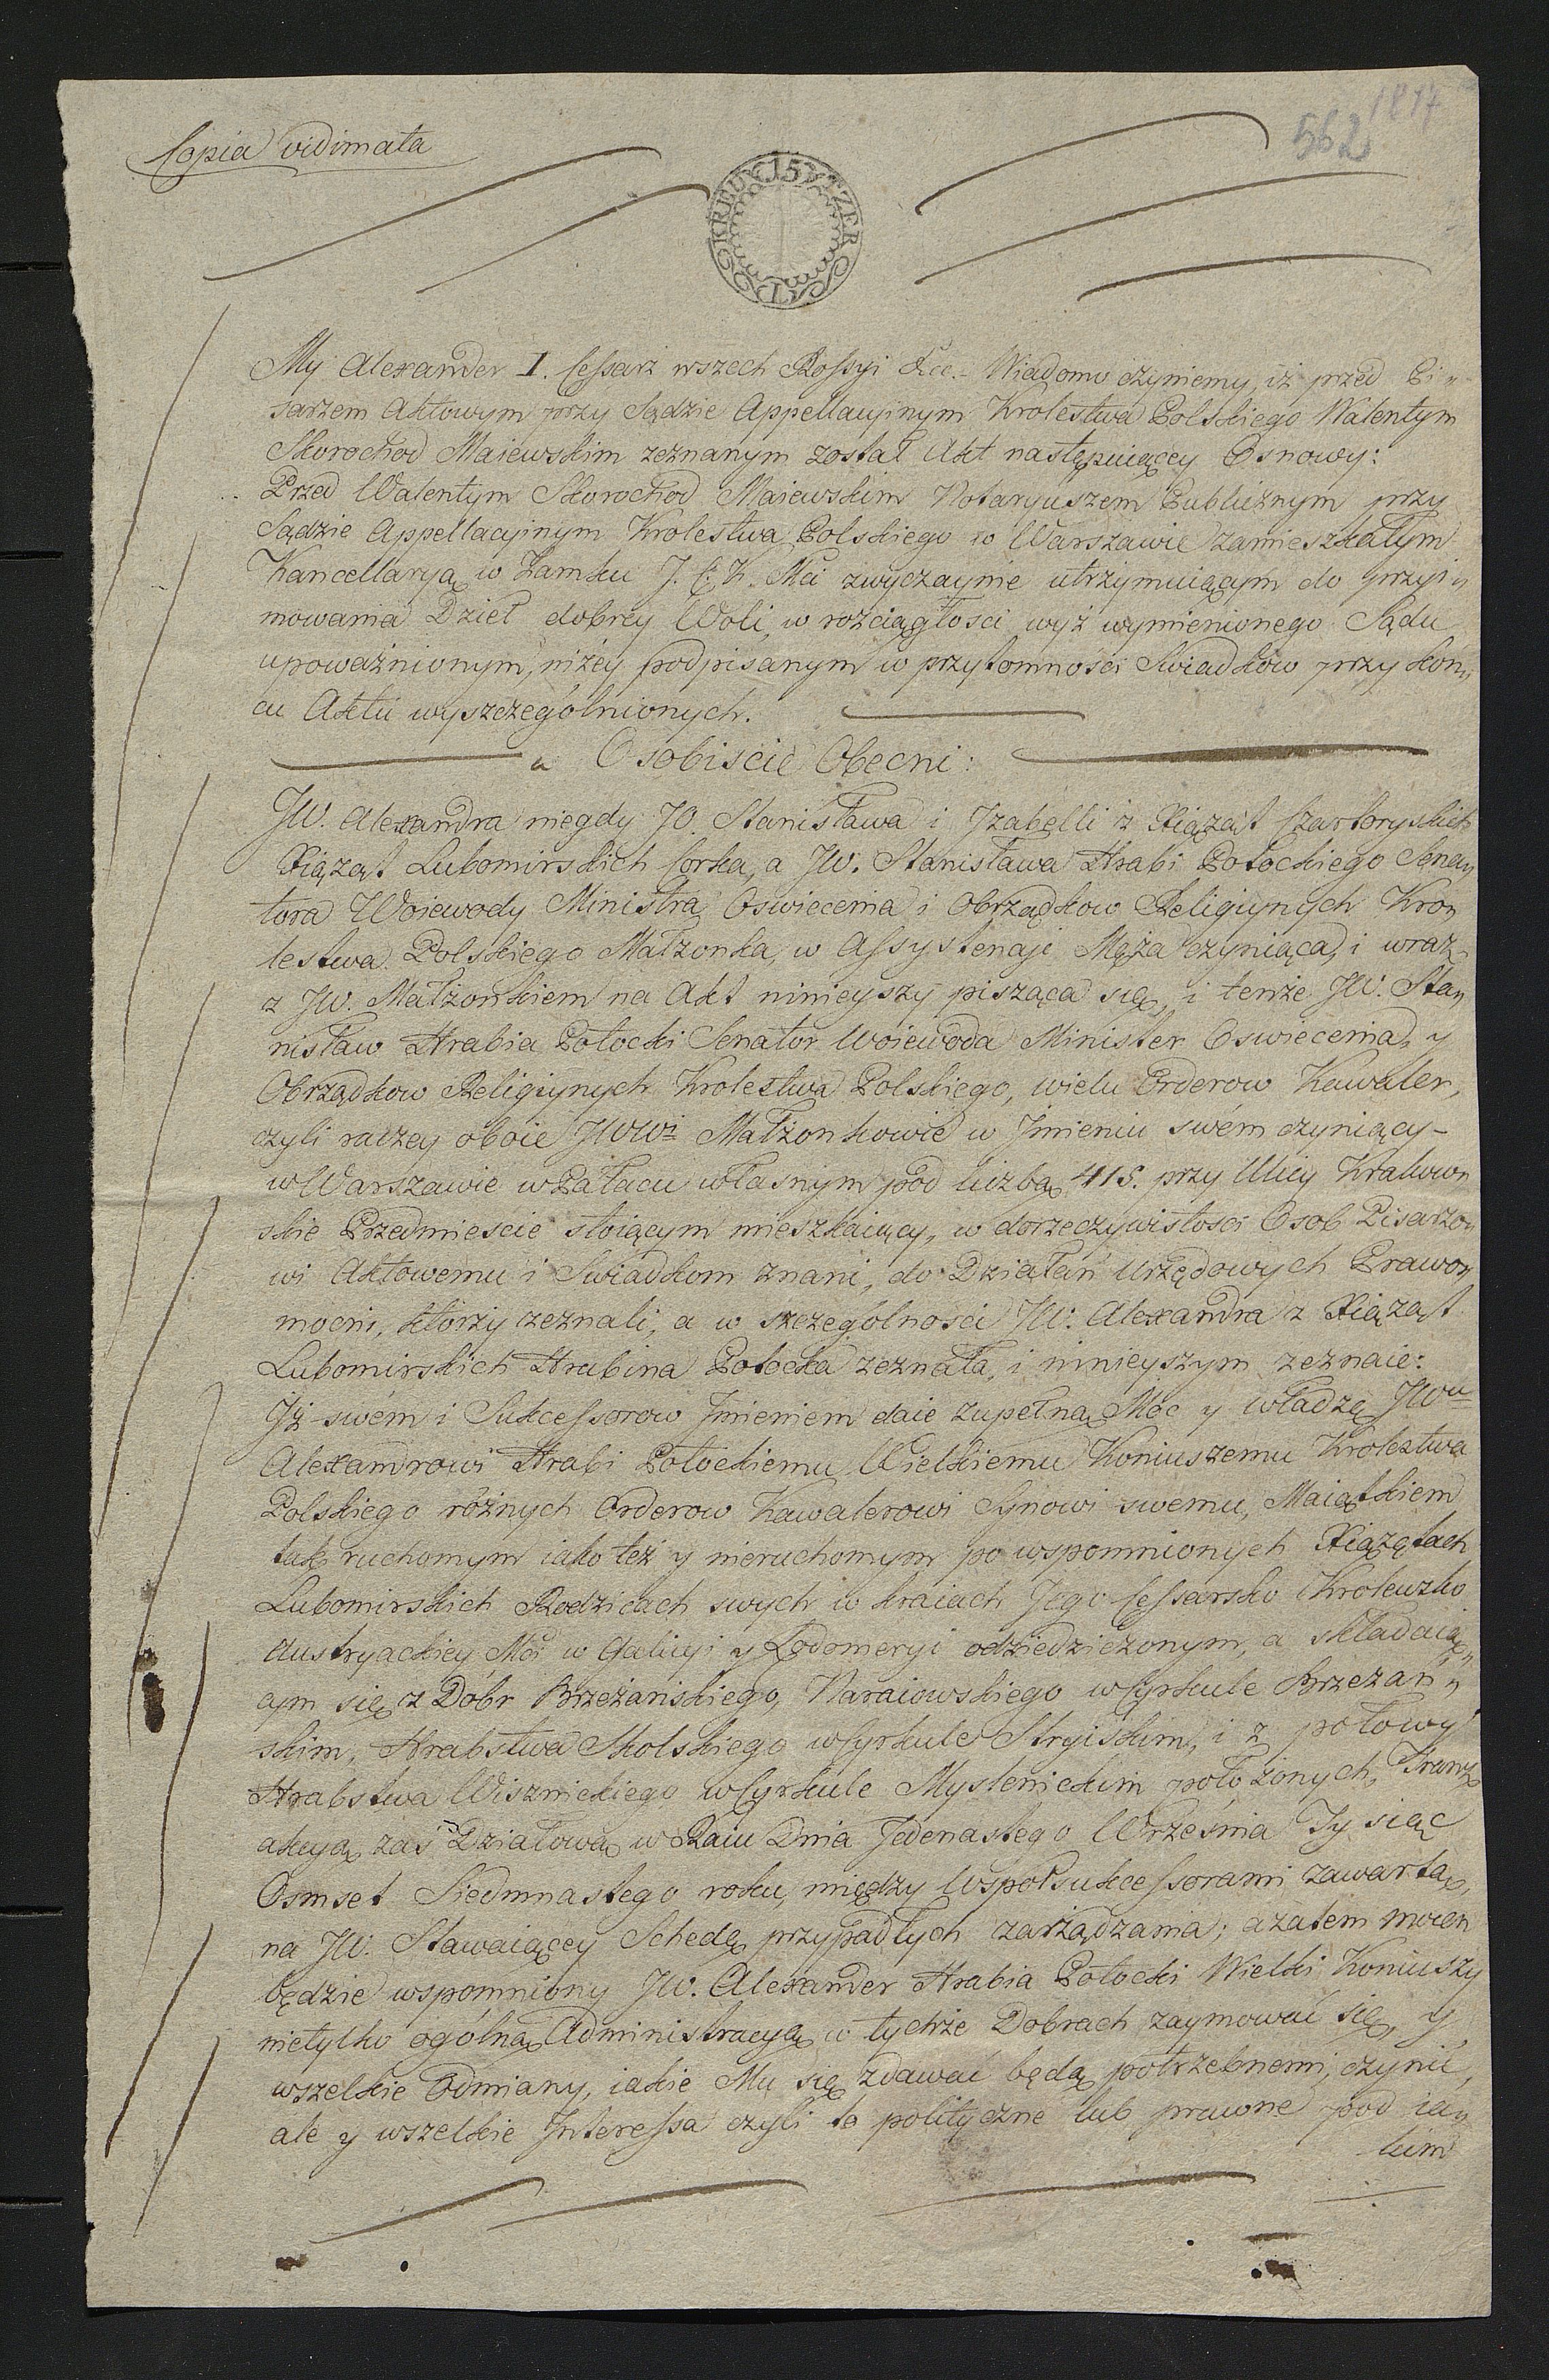 1817
562
Copia vidimata
15 KREUTZER
My Alexander I. Cessarz wszech Rossyi &ce. Wiadomo czyniemy, iż przed Pi„
sarzem Aktowym przy Sądzie Appellacyinym Krolestwa Polskiego Walentym
Skorochod Maiewskim zeznanym został Akt następuiącey Osnowy:
Przed Walentym Skorochod Maiewskim Notaryuszem Publicznym przy
Sądzie Appellacyinym Krolestwa Polskiego w Warszawie zamieszkałym
Kancellaryą w Zamku J. C. K. Mci zwyczaynie utrzymuiącym do przyi„
mowania Dzieł dobrey Woli, w rozciągłosci wyż wymienionego Sądu
upoważnionym, niżey podpisanym w przytomności Swiadkow przy koń„
cu Aktu wyszczególnionych.
Osobiscie Obecni:
JW. Alexandra niegdy JO. Stanisława i Jzabelli z Xiążąt Czartoryskich
Xiążąt Lubomirskich Corka, a JW. Stanisława Hrabi Potockiego Sena„
tora Woiewody Ministra Oswiecenia i Obrządkow Religiynych Kro„
lestwa Polskiego Małzonka, w Assystencyi Męża czyniąca, i wraz
z JW. Małżonkiem na Akt ninieyszy pisząca się, i tenże JW. Sta„
nisław Hrabia Potocki Senator Woiewoda Minister Oswiecenia, y
Obrządkow Religiynych Krolestwa Polskiego, wielu Orderow Kawaler,
czyli raczey oboie JWWi Małżonkowie w Jmieniu swém czyniący –
w Warszawie w Pałacu własnym pod liczbą 415. przy Ulicy Krakow„
skie Przedmieście stoiącym mieszkaiący, w dorzeczywistości Osob Pisarzo„
wi Aktowemu i Swiadkom znani, do Działań Urzędowych Prawo„
mocni, którzy zeznali, a w szczególności JW. Alexandra z Xiążąt
Lubomirskich Hrabina Potocka zeznała, i ninieyszym zeznaie:
Jż swém i Sukcessorow Jmieniem daie zupełną Moc y władzę JWu
Alexandrowi Hrabi Potockiemu Wielkiemu Koniuszemu Krolestwa
Polskiego różnych Orderow Kawalerowi Synowi swemu, Maiątkiem
tak ruchomym iako też y nieruchomym po wspomnionych Xiążętach
Lubomirskich Rodzicach swych w kraiach Jego Cessarsko Krolewsko
Austryackiey Mci w Galicyi y Lodomeryi odziedziczonym, a składaią„
cym się z Dóbr Brzeżańskiego, Naraiowskiego w Cyrkule Brzeżań„
skim, Hrabstwa Skolskiego w Cyrkule Stryiskim, i z połowy
Hrabstwa Wisznickiego w Cyrkule Myslenickim położonych, Tranz„
akcyą zaś Działową w Raiu Dnia Jedenastego Września Tysiąc
Osmset Siedmnastego roku, między Wspołsukcessorami zawartą,
na JW. Stawaiącey Schedę przypadłych zarządzania; a zatem mocen
będzie wspomniony JW. Alexander Hrabia Potocki Wielki Koniuszy
nietylko ogólną Administracyą w tychże Dobrach zaymować się, y
wszelkie Odmiany, iakie Mu się zdawać będą potrzebnemi, czynić,
ale y wszelkie Jnteressa czyli to polityczne lub prawne pod ia„
kim